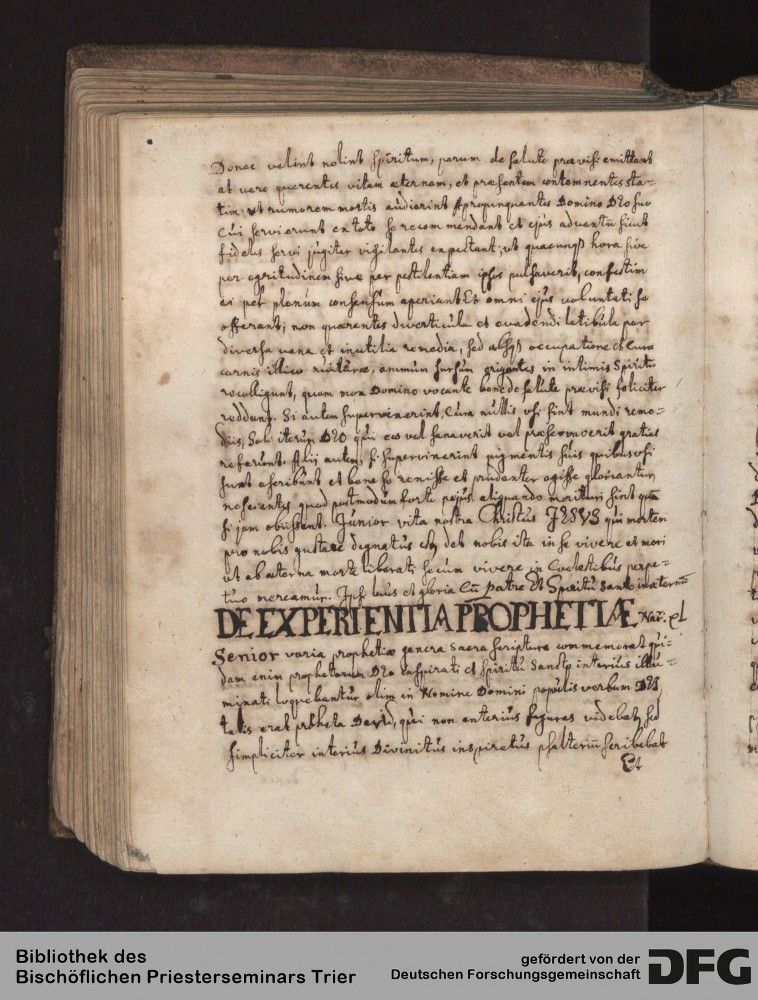 Donec velint nolint spiritum, parum de salute prævisi emittant
at vero querentes vitam æternam, et præsentem contemnentes sta-
tim, ut rumorem mortis audierint Apropinquantes Domino DEo suo
Cui servierunt ex toto se recommendant et ejus adventū sicut
fideles servi jugiter vigilantes expectant; ut quacunqꝫ hora sive
per egritudinem sive per pestilentiam ipsos pulsaverit, confestim
ei per plenum consensum aperiant Et omni ejus voluntati se
offerant; non quærentes diverticula et evadendi latibula per
diversa vana et inutilia remedia, sed absqꝫ occupatione et cura
carnis illico rualuræ, animum sursum erigentes in intimis Spiritū
recolligunt, quem mox Domino vocante bene de salute prævisi feliciter
reddunt. Si autem supervixerint, Cum nullis usi sint mundi reme-
diis, Soli iterum DEO qui eos vel sanaverit vel præservaverit gratias
referunt. Alij autem, si supervixerint pigmentis suis quibus usi
sunt ascribunt et bene se venisse et prudenter egisse gloriantur,
nescientes quod postmodum forte pejus aliquando morituri sint quā
si jam obiissent. Junior vita nostra Christus JESVS qui mortem
pro nobis gustare dignatus est, det nobis ita in se vivere et mori
ut ab æterna morte liberati secum vivere in Cœlestibus perpe-
tuo mereamur. Ipsi laus et gloria Cū patre Et Spiritū Sancto in æternū
DE EXPERIENTIA PROPHETIÆ Nar. Cl
Senior varia prophetiæ genera sacra scriptura commemorat qui-
dam enim prophetarum DEo inspirati et spiritu Sancto interius illu-
minati loquebantur olim in Nomine Domini populis verbum DEI,
talis erat propheta David, qui non exterius figuras videbat, sed
simpliciter interius Divinitus inspiratus psalteriū scribebat
Et
Bibliothek des
Bischöflichen Priesterseminars Trier
gefördert von der
Deutschen Forschungsgemeinschaft
DFG